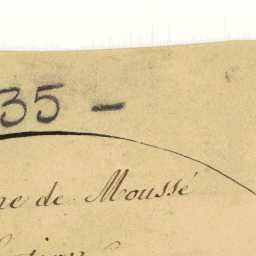 35 -
ne de Moussé